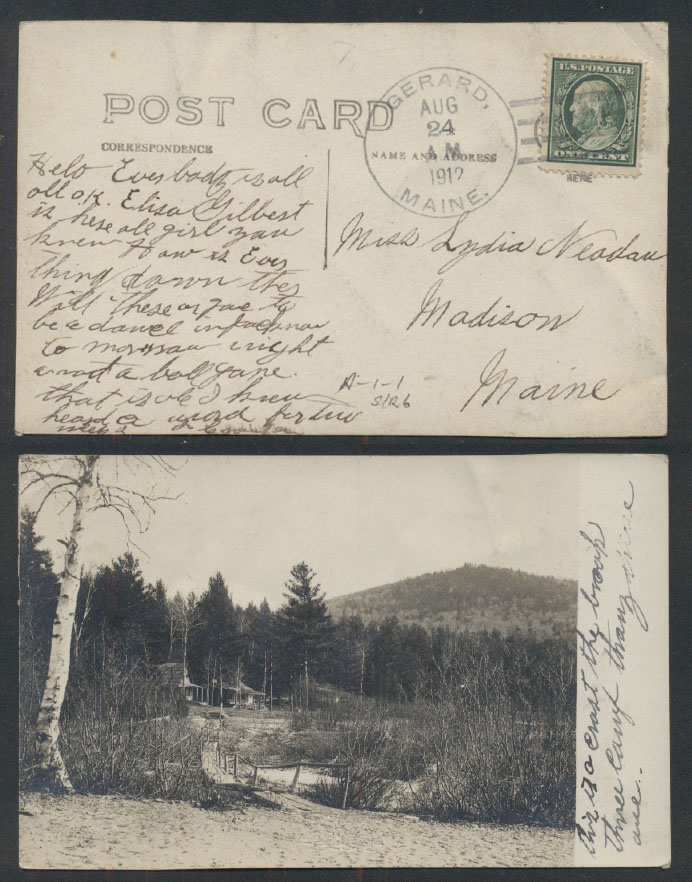 POST CARD
CORRESPONDENCE
NAME AND ADDRESS
HERE
GERARD,
AUG
24
AM
1912
MAINE.
U.S. POSTAGE
ONE CENT
Helo Everbody is all
all O.K. Elisa Gilbert
is here all girl you
knew How is Ever
thing down ther
Will these
be a dance
to morrow night
and a ball game.
that is ole I knew
head a word for
Miss Lydia Neadau
Madison
Maine
A-1-1
S/126
this is a crost the brook
three camp
one.